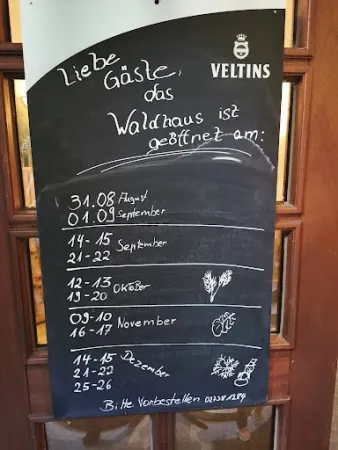 Liebe
Gäste,
VELTINS
das
Waldhaus ist
geöffnet am:
31.08 August
01.09 September
14-15 September
21-22
12-13 Oktober
19-20
09-10 November
16-17
14-15 Dezember
21-22
25-26
Bitte Vorbestellen